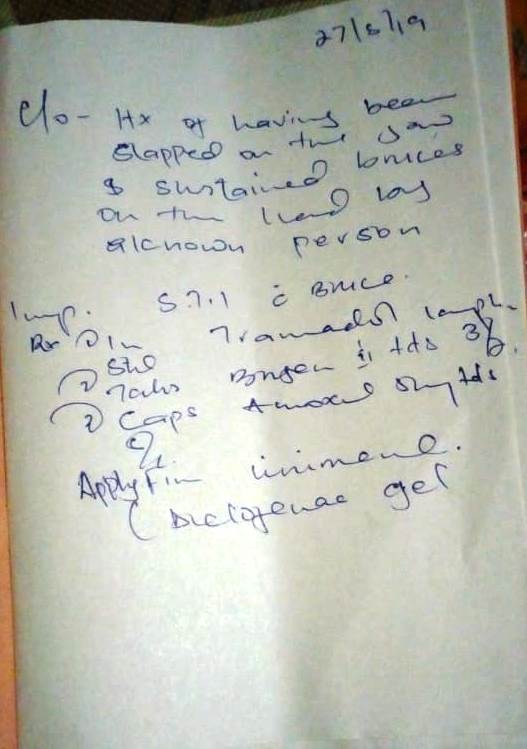 27/5/19
C/o - Hx of having been
slapped on the jaw
& sustained bruces
on the hand by
aknown person
Imp. S.T.I c Bruce.
Rx ① In Tramadol
Stat
② Tabs Brufen ii tds 3/7
③ Caps Amoxil tds
Apply
liniment.
( Diclofenac gel